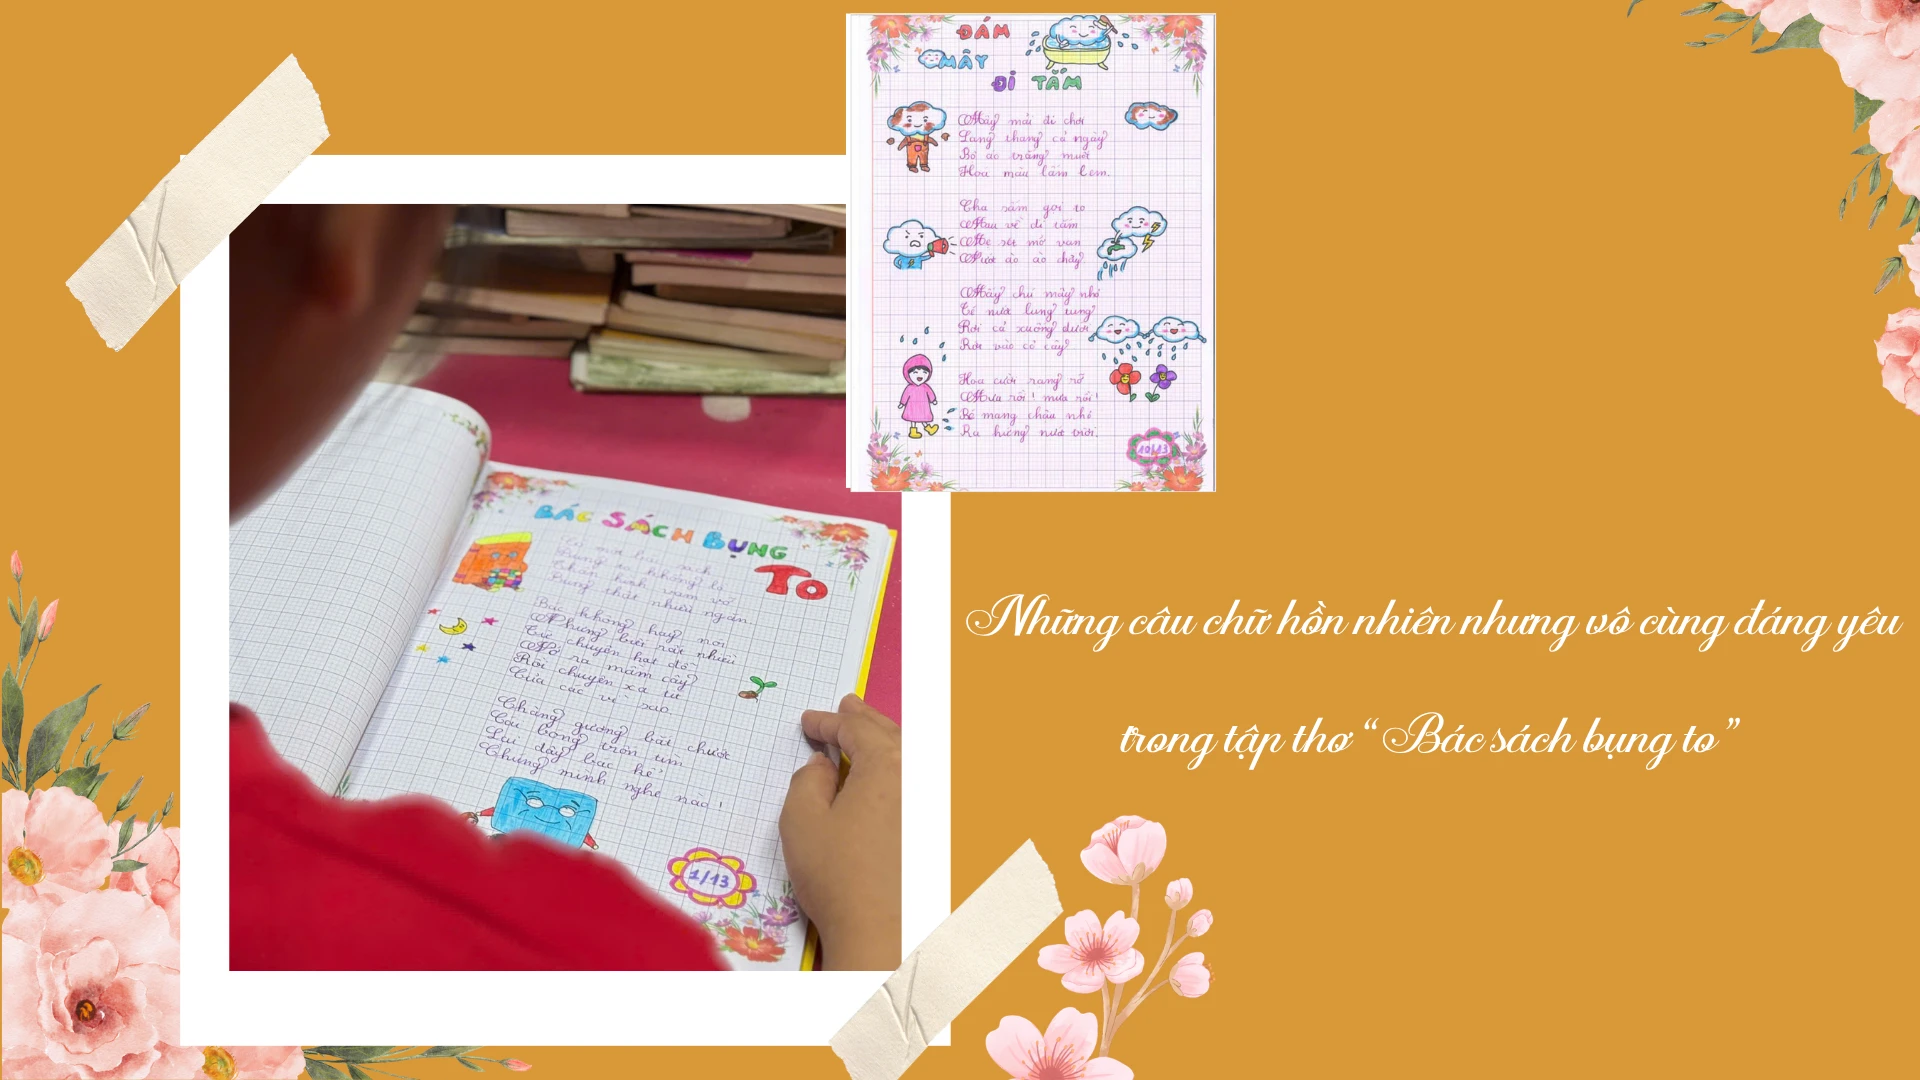 ĐÁM
MÂY
ĐI TẮM
Mây mải đi chơi
Lang thang cả ngày
Bỏ áo trắng muốt
Hoá màu lấm lem.
Cha sấm gọi to
Mau về đi tắm
Mẹ sét mở van
Nước ào ào chảy
Mấy chú mây nhỏ
Té nước lung tung
Rơi cả xuống dưới
Rơi vào cỏ cây
Hoa cười rạng rỡ
Mưa rồi! mưa rồi!
Bé mang chậu nhỏ
Ra hứng nước trời.
10/13
BÁC SÁCH BỤNG
TO
Có một bác sách
Bụng to khổng lồ
Thân hình vạm vỡ
Bụng thật nhiều ngăn.
Bác không hay nói
Nhưng biết rất nhiều
Từ chuyện hạt đỗ
Nở ra mầm cây
Rồi chuyện xa tít
Của các vì sao
Chàng gương bắt chước
Cậu bóng tròn im
Lại đây bác kể
Chúng mình nghe nào!
1/13
Những câu chữ hồn nhiên nhưng vô cùng đáng yêu
trong tập thơ “Bác sách bụng to”